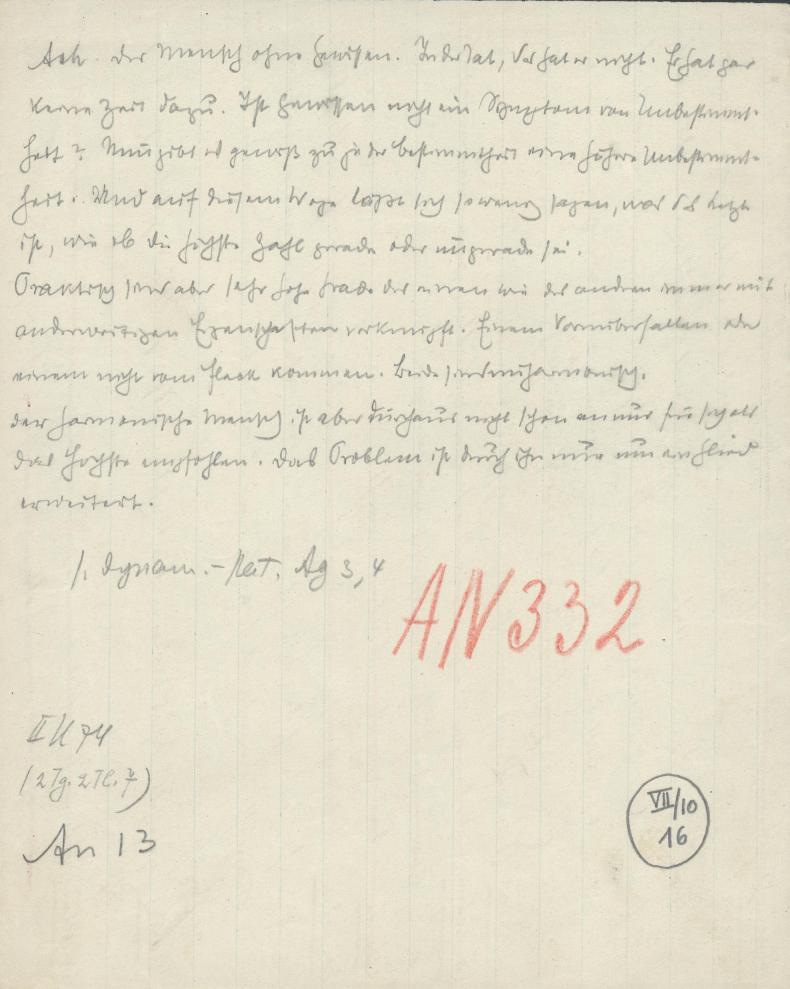 Ach. der Mensch ohne Gewissen. In der Tat, das hat er nicht. Er hat gar
keine Zeit dazu. Ist Gewissen nicht ein Symptom von Unbestimmt-
heit? Nun gibt es gewiß zu jeder Bestimmtheit eine höhere Unbestimmt-
heit. Und auf diesem Wege läßt sich so wenig sagen, was das Letzte
ist, wie ob die höchste Zahl gerade oder ungerade sei.
Praktisch sind aber sehr hohe Grade des einen wie des andren immer mit
anderweitigen Eigenschaften verknüpft. Einem Vornüberfallen oder
einem nicht vom Fleck kommen. Beide sind unharmonisch.
der harmonische Mensch ist aber durchaus nicht schon an und für sich als
das Höchste empfohlen. Das Problem ist durch ihn nur um ein Glied
erweitert.
s. dynam.-rat. Ag 3,4
AN 332
II U 74
(2 Tg. 2 Tl. ?)
An 13
VII/10
16